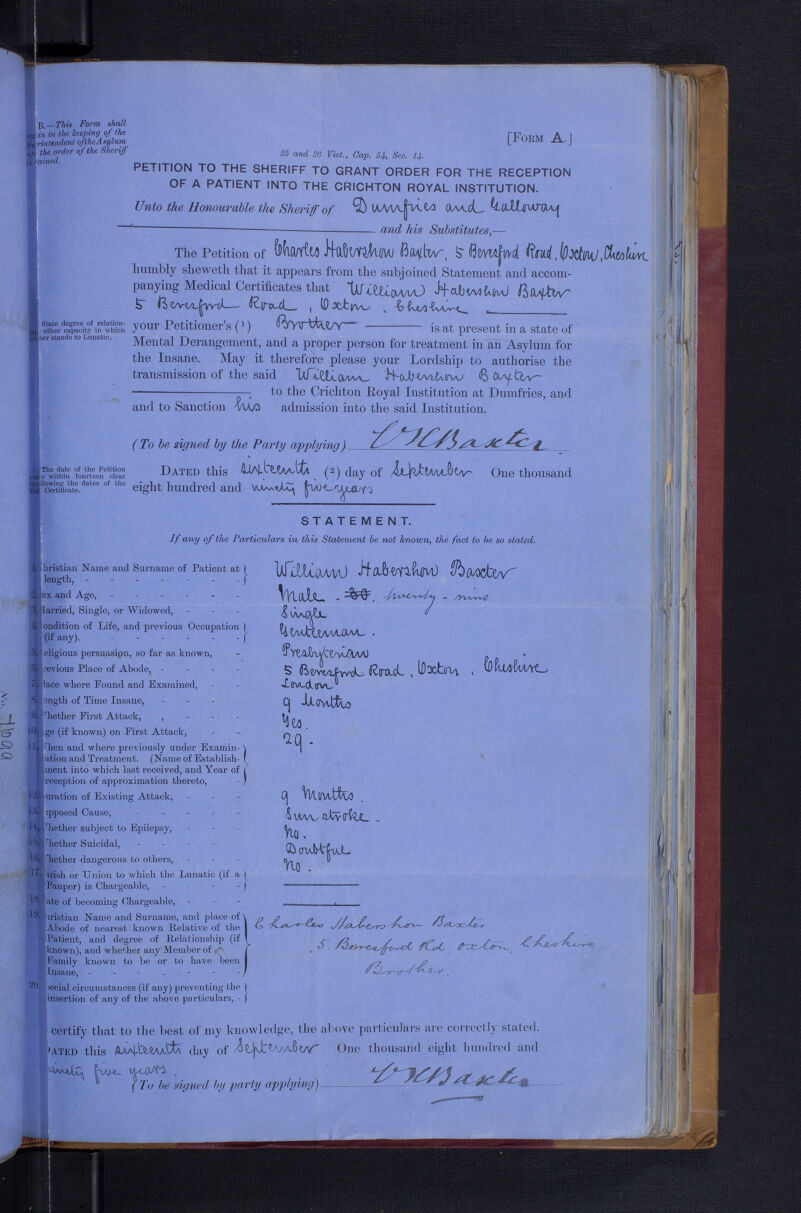 B.—This Form shall
in in the keeping of the
rintendent of the Asylum
the order of the Sheriff
ained.
[FORM A.]
25 and 26 Vict., Cap. 54, Sec. 14.
PETITION TO THE SHERIFF TO GRANT ORDER FOR THE RECEPTION
OF A PATIENT INTO THE CRICHTON ROYAL INSTITUTION.
Unto the Honourable the Sheriff of Dumfries and Galloway
and his Substitutes,—
The Petition of Charles Habershon Baxter, 5 Beresford Road, Oxton, Cheshire
humbly sheweth that it appears from the subjoined Statement and accom-
panying Medical Certificates that William Habershon Baxter
5 Beresford Road, Oxton, Cheshire
State degree of relation-
other capacity in which
ner stands to Lunatic.
your Petitioner's (1) Brother is at present in a state of
Mental Derangement, and a proper person for treatment in an Asylum for
the Insane. May it therefore please your Lordship to authorise the
transmission of the said William Habershon Baxter
to the Crichton Royal Institution at Dumfries, and
and to Sanction his admission into the said Institution.
(To be signed by the Party applying) C H Baxter
The date of the Petition
within fourteen clear
llowing the dates of the
Certificate.
DATED this sixteenth (2) day of September One thousand
eight hundred and ninety five years
STATEMENT.
If any of the Particulars in this Statement be not known, the fact to be so stated.
1. hristian Name and Surname of Patient at
length, - William Habershon Baxter
2. ex and Age, - Male - 30. twenty-nine
3. larried, Single, or Widowed, - Single
4. ondition of Life, and previous Occupation
(if any). - Gentleman.
5. eligious persuasion, so far as known, - Presbyterian
6. revious Place of Abode, - 5 Beresford Road, Oxton, Cheshire
7. lace where Found and Examined, - London
8. ength of Time Insane, - 9 Months
9. hether First Attack, - Yes.
10. ge (if known) on First Attack, - 29 -
11. hen and where previously under Examin-
ation and Treatment. (Name of Establish-
ment into which last received, and Year of
reception of approximation thereto, -
12. uration of Existing Attack, - 9 Months.
13. upposed Cause, - Sun stroke -
14. hether subject to Epilepsy, - No.
15. hether Suicidal, - Doubtful
16. hether dangerous to others, - No -
17. arish or Union to which the Lunatic (if a
Pauper) is Chargeable, -
18. ate of becoming Chargeable, -
19. hristian Name and Surname, and place of
Abode of nearest known Relative of the
Patient, and degree of Relationship (if
known), and whether any Member of
Family known to be or to have been
Insane, -
Charles Habershon Baxter
5. Beresford Rd. Oxton. Cheshire
Brother.
20. pecial circumstances (if any) preventing the
insertion of any of the above particulars, -
certify that to the best of my knowledge, the above particulars are correctly stated.
DATED this sixteenth day of September One thousand eight hundred and
ninety five years.
(To be signed by party applying) C H Baxter
No.